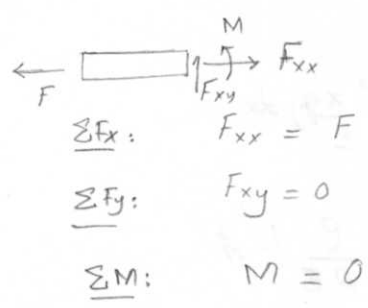 M
F
Fxy
Fxx
ΣFx: Fxx = F
ΣFy: Fxy = 0
ΣM: M = 0